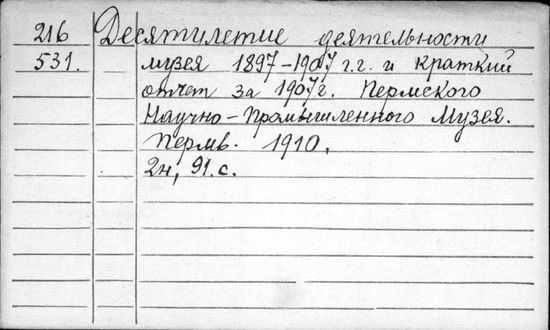 216 Десятилетие деятельности
531. музея 1897-1907 г.г. и краткий
отчет за 1907 г. Пермского
Научно-Промышленного Музея.
Пермь. 1910.
2н, 91. с.